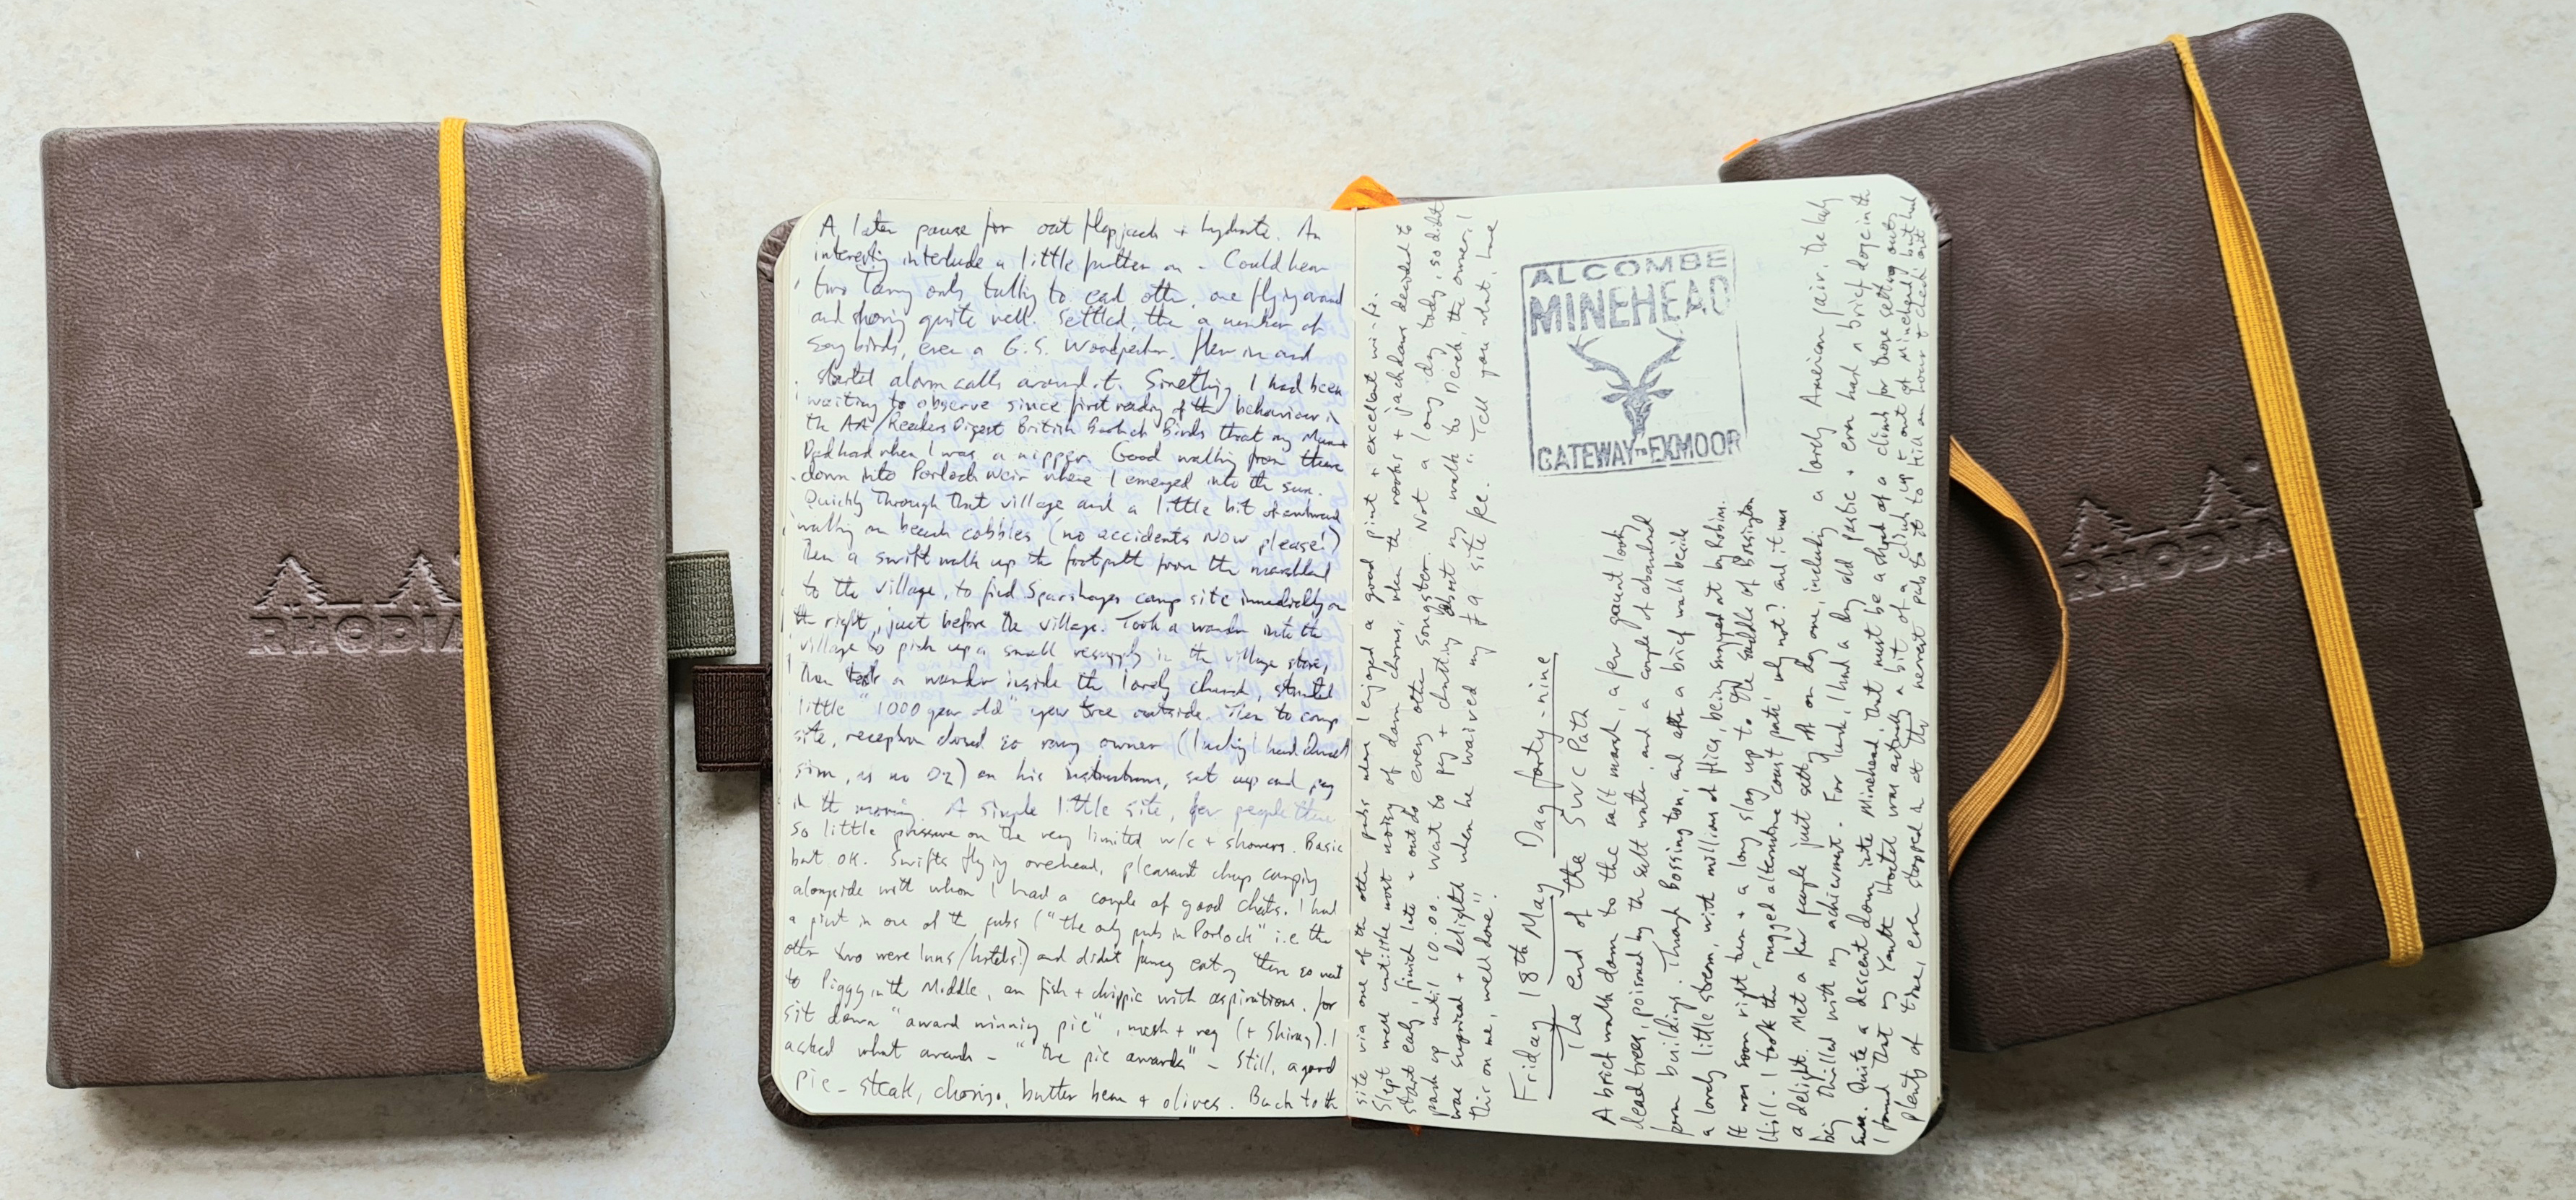 RHODIA
A later pause for oat flapjack + hydrate. An
interesting interlude a little further on - Could hear
two Tawny owls talking to each other, one flying around
and showing quite well. Settled, then a number of
song birds, even a G.S. Woodpecker, flew in and
started alarm calls around it. Something I had been
waiting to observe since first reading of the behaviour in
the AA/Readers Digest British Book of Birds that my Mum +
Dad had when I was a nipper. Good walking from there
down into Porlock Weir where I emerged into the sun.
Quickly through that village and a little bit of awkward
walking on beach cobbles (no accidents NOW please!)
Then a swift walk up the footpath from the marshland
to the village, to find Sparkhayes camp site immediately on
the right, just before the village. Took a wander into the
village to pick up a small resupply in the village store,
then took a wander inside the lovely church, stunted
little "1000 year old" yew tree outside. Then to camp
site, reception closed so rang owner (luckily I had
sim, as no O2) on his instructions, set up and pay
in the morning. A simple little site, few people there
so little pressure on the very limited w/c + showers. Basic
but OK. Swifts flying overhead, pleasant chap camping
alongside with whom I had a couple of good chats. I had
a pint in one of the pubs ("the only pub in Porlock" i.e. the
other two were Inns/hotels!) and didn't fancy eating there so went
to Piggy in the Middle, an fish + chippie with aspirations, for
sit down "award winning pie", mash + veg (+ Shiraz). I
asked what awards - "the pie awards" - Still, a good
pie - steak, chorizo, butter bean + olives. Back to the
site via one of the other pubs where I enjoyed a good pint + excellent wi-fi.
Slept well until the most noisy of dawn chorus, when the rooks + jackdaws decided to
start early, finish late + outdo every other songster. Not a long day today, so didn't
pack up until 10.00. Went to pay + chatting about my walk to the owner, I
was surprised + delighted when he waived my site fee. "Tell you what, have
this on me, well done".
Friday 18th May Day forty-nine
The end of the SWC Path
A brief walk down to the salt marsh, a few gaunt look
dead trees, poisoned by the salt water, and a couple of abandoned
farm buildings. Through Bossington, and after a brief walk beside
a lovely little stream, with millions of flies, being snapped at by Robins.
It was soon right turn + a long slog up to the saddle of Bossington
Hill. I took the 'rugged alternative coast path', why not? and it was
a delight. Met a few people just setting off on day one, including a lovely American pair, the lady
being thrilled with my achievement. For lunch, I had a dry old pastie + even had a brief doze in the
sun. Quite a descent down into Minehead, that must be a shock of a climb for those setting out.
I found that my Youth Hostel was actually a bit of a climb up + out of Minehead, but had
plenty of time, even stopped in at the nearest pub to it to kill an hour + check out
ALCOMBE
MINEHEAD
GATEWAY TO EXMOOR
RHODIA